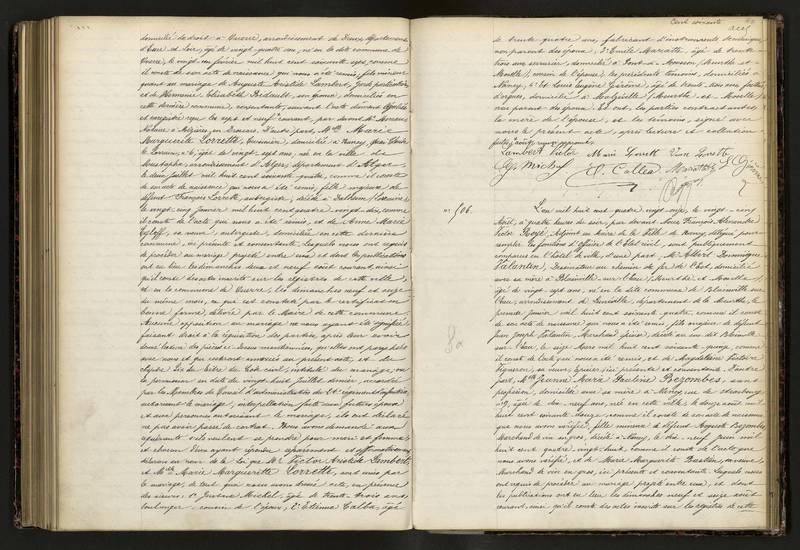 domicilié de droit à Cuverré, arrondissement de Dreux, département
d'Eure et Loir, âgé de vingt quatre ans, né en la dite commune de
le vingt six février mil huit cent soixante sept, comme
il conste de son acte de naissance qui nous a été remis, fils mineur
quant au mariage de Auguste Aristide Lambert,
et de Hermance Elisabeth sa femme, domiciliés en
cette dernière commune, consentants, suivant l'acte
et enregistré, reçu les sept et neuf courant, par devant Me
Notaire à D'autre part, Mlle Marie
Marguerite Lorrette, cuisinière, domiciliée à Nancy,
âgée de vingt sept ans, née en la ville de
Mustapha, arrondissement d'Alger, département d'Alger
le deux juillet mil huit cent soixante quatre, comme il conste
de son acte de naissance qui nous a été remis, fille majeure de
défunt François Lorrette, aubergiste, décédé à
le vingt cinq janvier mil huit cent quatre vingt dix, comme
il conste de l'acte qui nous a été remis, et de Anne Marie
sa veuve, aubergiste, domiciliée en cette dernière
commune, ici présente et consentante. Lesquels nous ont requis
de procéder au mariage projeté entre eux, et dont les publications
ont eu lieu les dimanches deux et neuf août courant, ainsi
qu'il conste des actes inscrits sur les registres de cette ville
et en la commune de les dimanches neuf et seize
du même mois, ce qui est constaté par le certificat en
bonne forme, délivré par le Maire de cette commune.
Aucune opposition au mariage ne nous ayant été signifiée
faisant droit à la réquisition des parties, après leur avoir
donné lecture des pièces ci-dessus mentionnées, qu'elles ont paraphées
avec nous et qui resteront annexées au présent acte, et du
chapitre six du titre du Code civil, intitulé du mariage, vu
la permission en date du vingt huit juillet dernier, accordée
par les Membres du Conseil d'administration du régiment d'infanterie
autorisant le mariage, interpellation faite aux futurs époux
et aux personnes autorisant le mariage, ils ont déclaré
ne pas avoir passé de contrat. Nous avons demandé aux
requérants s'ils veulent se prendre pour mari et femme,
et chacun d'eux ayant répondu séparément et affirmativement,
déclarons au nom de la loi que M. Victor Aristide Lambert,
et Mlle Marie Marguerite Lorrette, sont unis par
le mariage, de tout quoi nous avons dressé acte, en présence
des sieurs: 1° Gustave Michel, âgé de trente trois ans,
boulanger, cousin de l'époux, 2° Etienne Calba, âgé
Cent soixante
de trente quatre ans, fabricant d'instruments
non parent des époux, 3° Emile Marcatte, âgé de trente
trois ans, serrurier, domicilié à Pont-à-Mousson, (Meurthe et
Moselle), cousin de l'épouse, les précédents témoins, domiciliés à
Nancy, 4° et Louis Eugène Gérôme, âgé de trente trois ans, facteur
d'orgues, domicilié à (Meurthe et Moselle)
non parent des époux. Et ont, les parties contractantes,
la mère de l'épouse, et les témoins, signé avec
nous le présent acte, après lecture et collation
Lambert Victor Marie Lorrette Veuve Lorrette
Gve Michel E. Calba Marcatte E Gérôme
N° 506.
L'an mil huit cent quatre vingt onze, le vingt cinq
Août, à quatre heures du soir, par devant Nous François Alexandre
Victor Rogé, Adjoint au Maire de la Ville de Nancy, délégué pour
remplir les fonctions d'officier de l'état civil, sont publiquement
comparus en l'hôtel de ville, d'une part, Mr Albert Dominique
Valantin, Dessinateur au chemin de fer de l'Est, domicilié
avec sa mère à Blainville sur l'Eau, (Meurthe et Moselle),
âgé de vingt sept ans, né en la dite commune de Blainville sur
l'Eau, arrondissement de Lunéville, département de la Meurthe, le
premier janvier mil huit cent soixante quatre, comme il conste
de son acte de naissance qui nous a été remis, fils majeur de défunt
Jean Joseph Valantin, décédé au dit Blainville
sur l'Eau, le seize Mars mil huit cent soixante quinze, comme
il conste de l'acte qui nous a été remis, et de Magdelaine Victoire
sa veuve, ici présente et consentante. D'autre
part, Mlle Jeanne Marie Pauline Bezombes, sans
profession, domiciliée avec sa mère à Nancy, rue de Strasbourg,
âgée de dix neuf ans, née en cette ville, le douze août mil
huit cent soixante douze, comme il conste de son acte de naissance
que nous avons vérifié, fille mineure de défunt Auguste Bezombes,
Marchand de vin en gros, décédé à Nancy, le dix neuf juin mil
huit cent quatre vingt huit, comme il conste de l'acte que
nous avons vérifié, et de Marie Marguerite sa veuve,
Marchande de vin en gros, ici présente et consentante. Lesquels nous
ont requis de procéder au mariage projeté entre eux, et dont
les publications ont eu lieu les dimanches neuf et seize août
courant, ainsi qu'il conste des actes inscrits sur les registres de cette